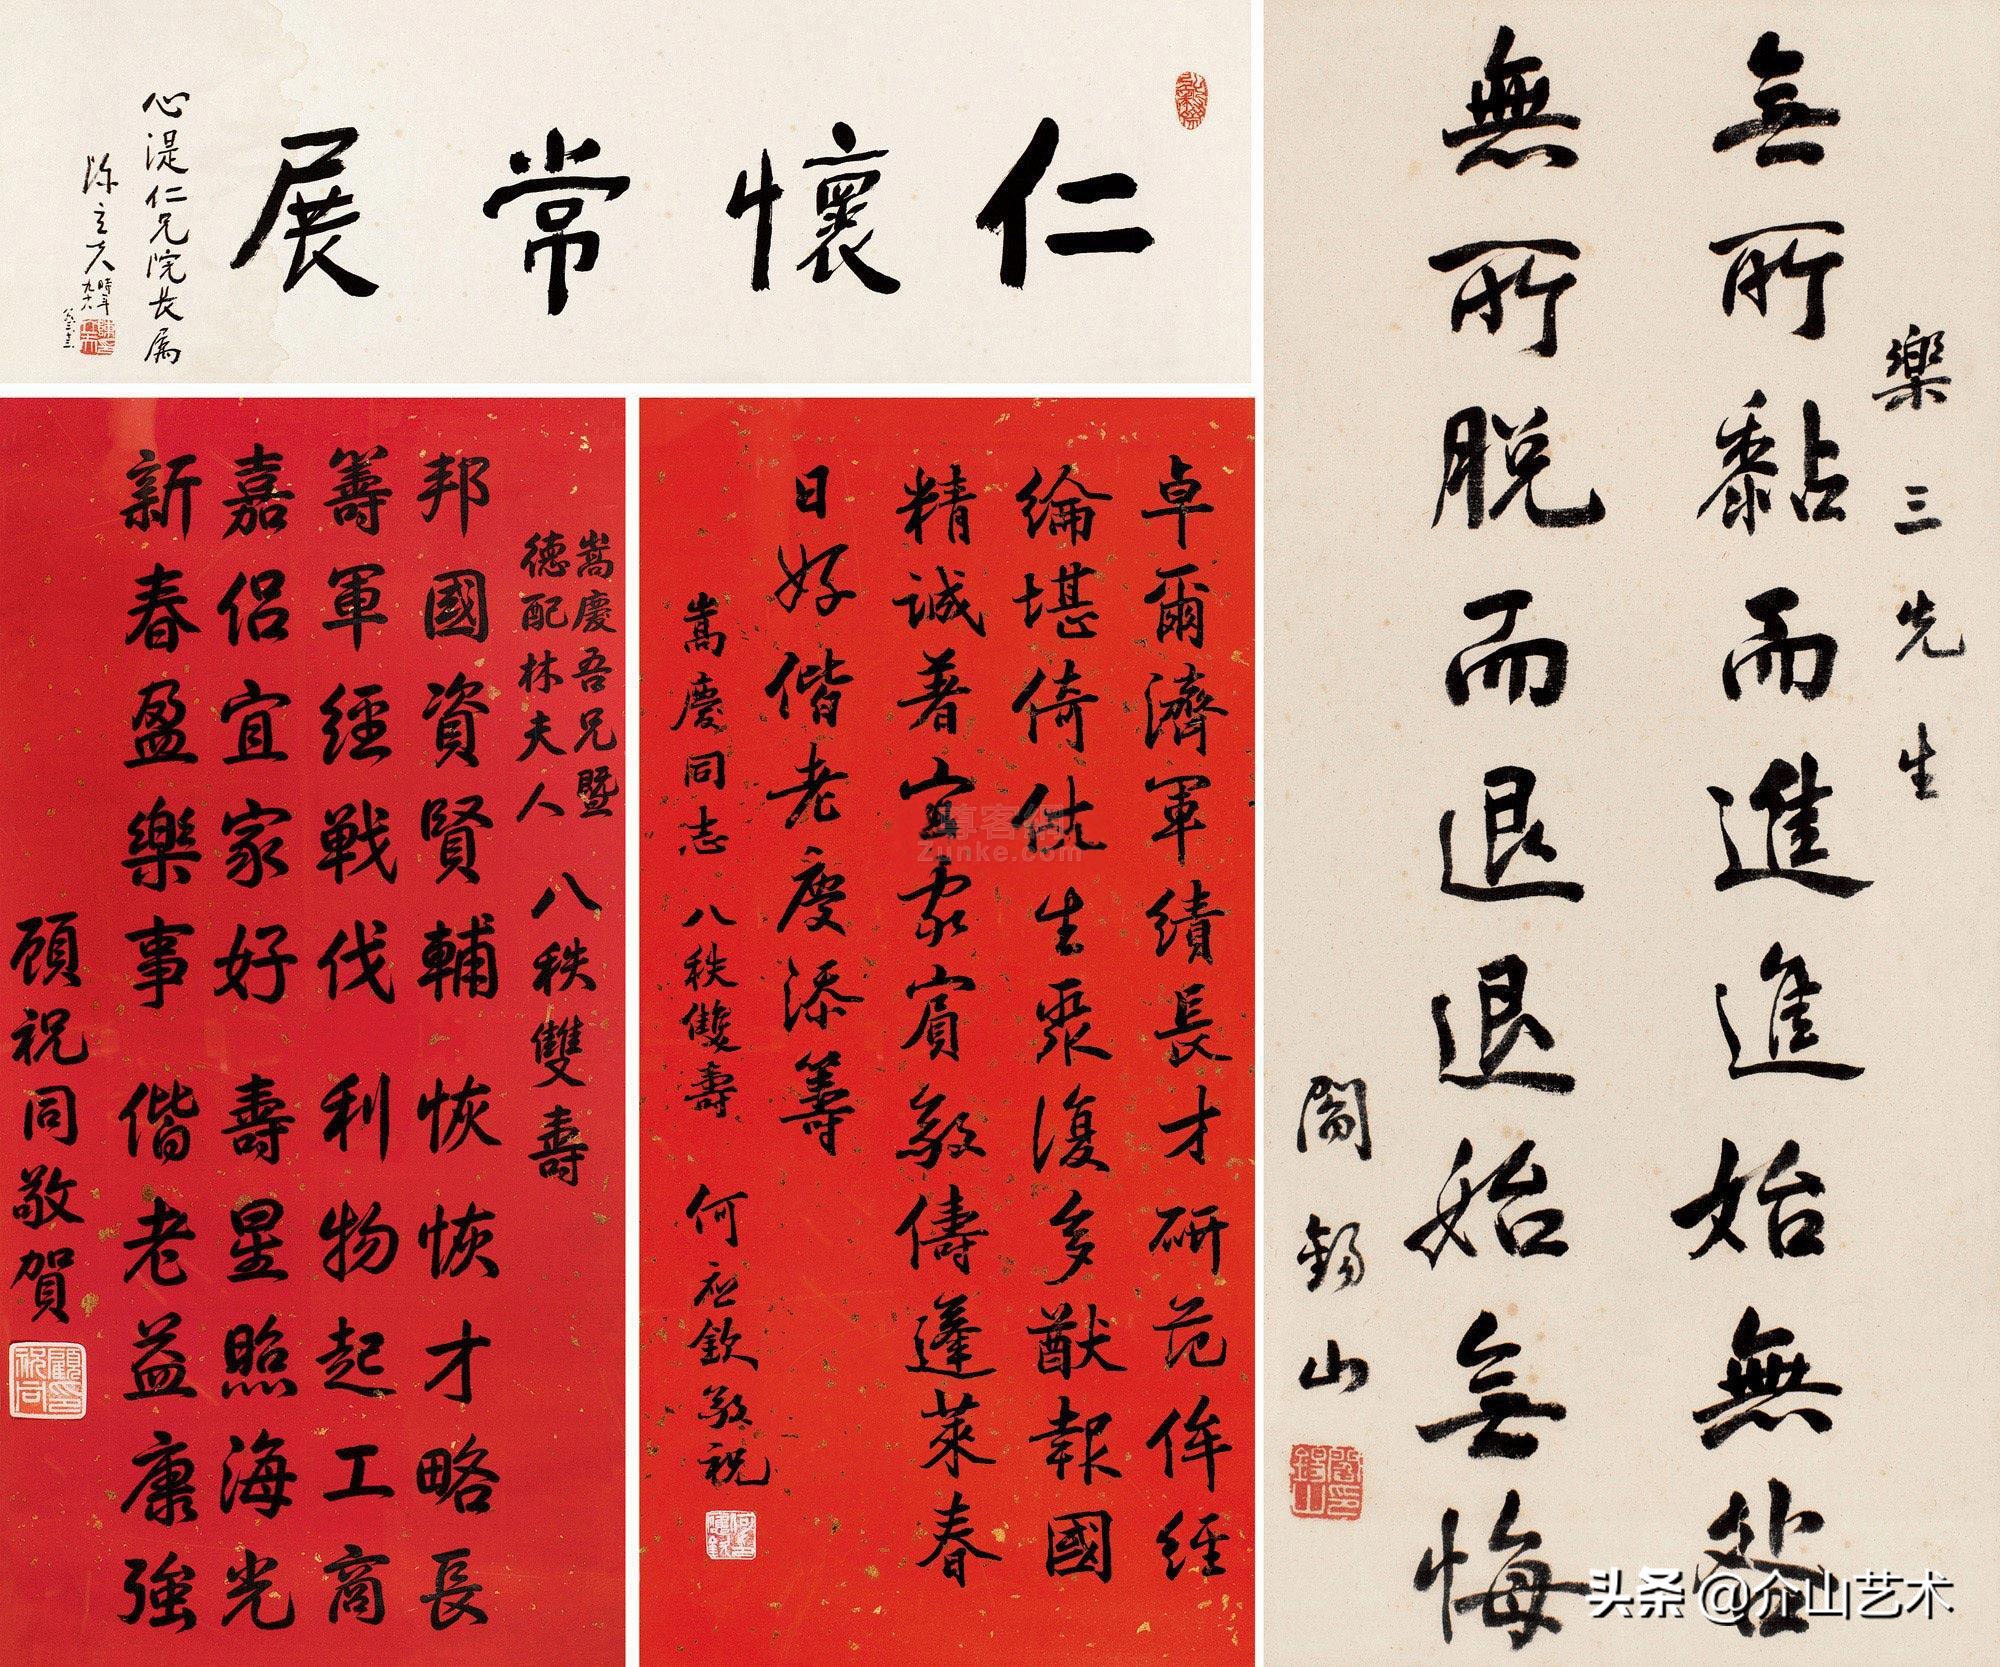 仁懷常展
心湜仁兄院長屬
陳立夫時年九十六
樂三先生
無所黏而進進始無咎
無所脱而退退始無悔
閻錫山
嵩慶吾兄暨
德配林夫人
八秩雙壽
邦國資賢輔 恢恢才略長
籌軍經戰伐 利物起工商
嘉侣宜家好 壽星照海光
新春盈樂事 偕老益康強
顧祝同敬賀
顧祝同印
卓爾濟軍績長才研范侔經
綸堪倚仗生聚復多猷報國
精誠著宜家賓敬儔蓬萊春
日好偕老慶添籌
嵩慶同志 八秩雙壽 何應欽敬祝
尊客網
Zunke.com
头条@介山艺术